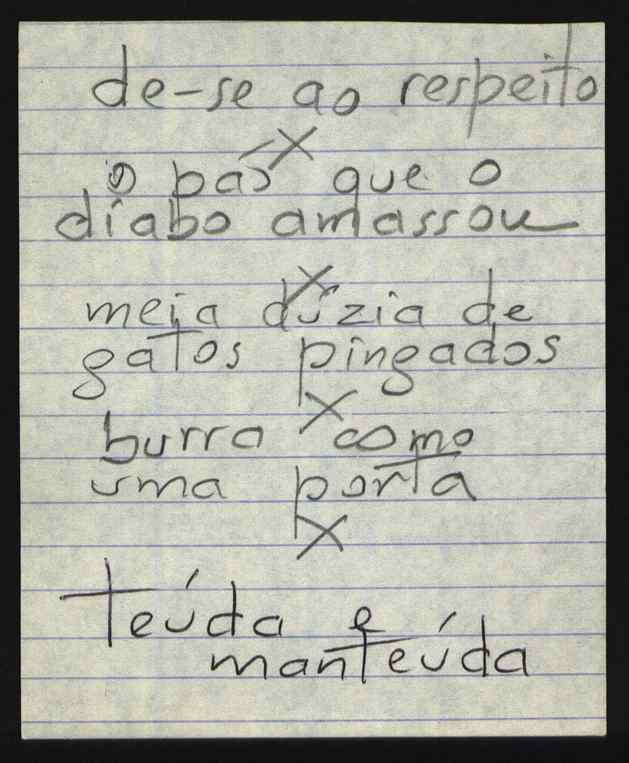 de-se ao respeito
X
o pão que o
diabo amassou
X
meia dúzia de
gatos pingados
X
burra como
uma porta
X
teúda e
manteúda